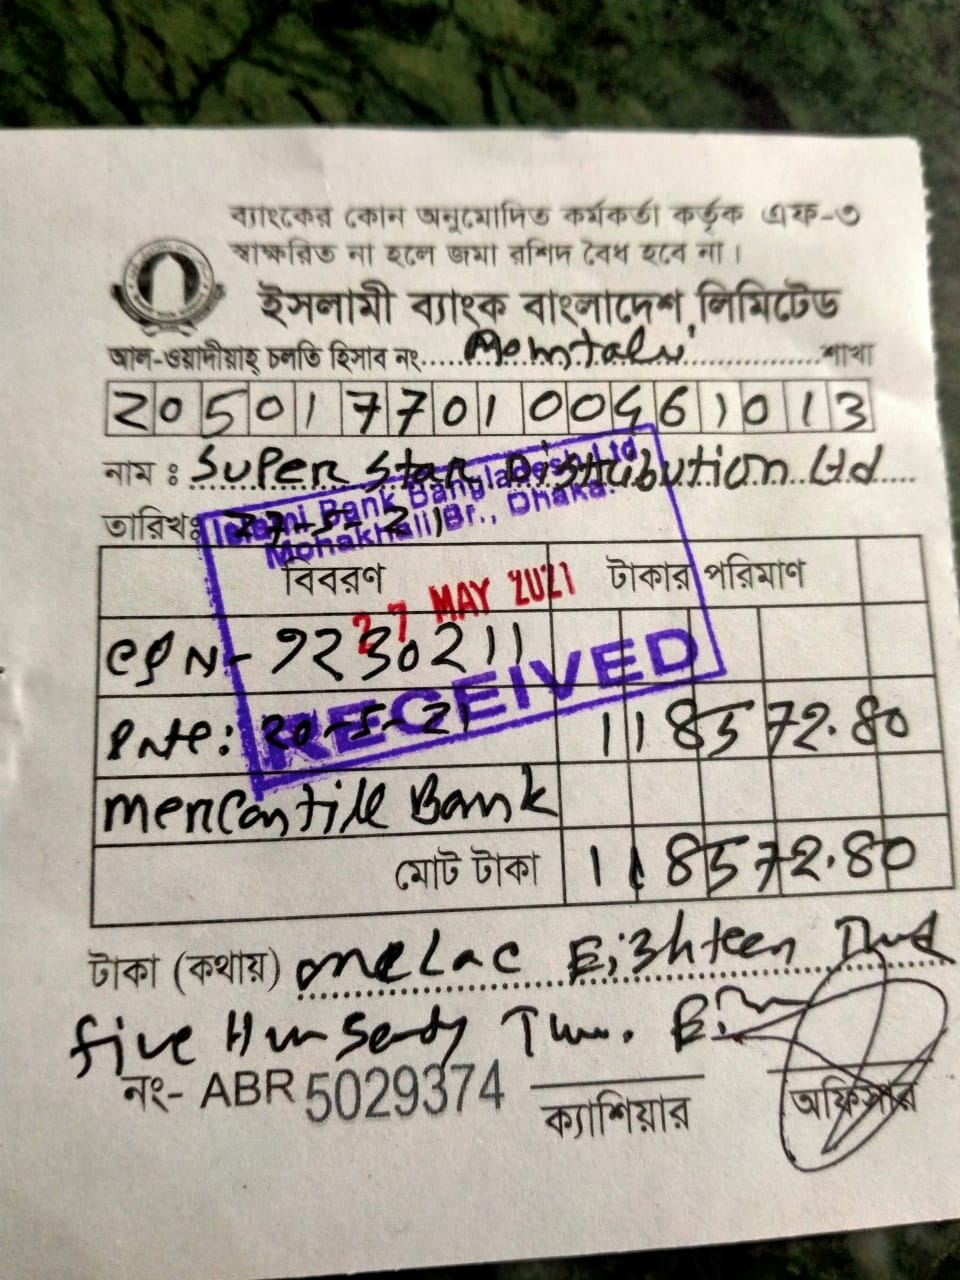 ব্যাংকের কোন অনুমোদিত কর্মকর্তা কর্তৃক এফ-৩
স্বাক্ষরিত না হলে জমা রশিদ বৈধ হবে না।
ইসলামী ব্যাংক বাংলাদেশ লিমিটেড
আল-ওয়াদীয়াহ্ চলতি হিসাব নং.....................শাখা
20501770100461013
নাম : Super Star Distribution Ltd
তারিখঃ 27-5-21
Islami Bank Bangladesh Ltd
Mohakhali Br., Dhaka.
বিবরণ টাকার পরিমাণ
27 MAY 2021
9230211
RECEIVED
20-5-21 118572.80
Mercantile Bank
মোট টাকা 118572.80
টাকা (কথায়) one Lac Eighteen
five
নং- ABR 5029374
ক্যাশিয়ার
অফিসার